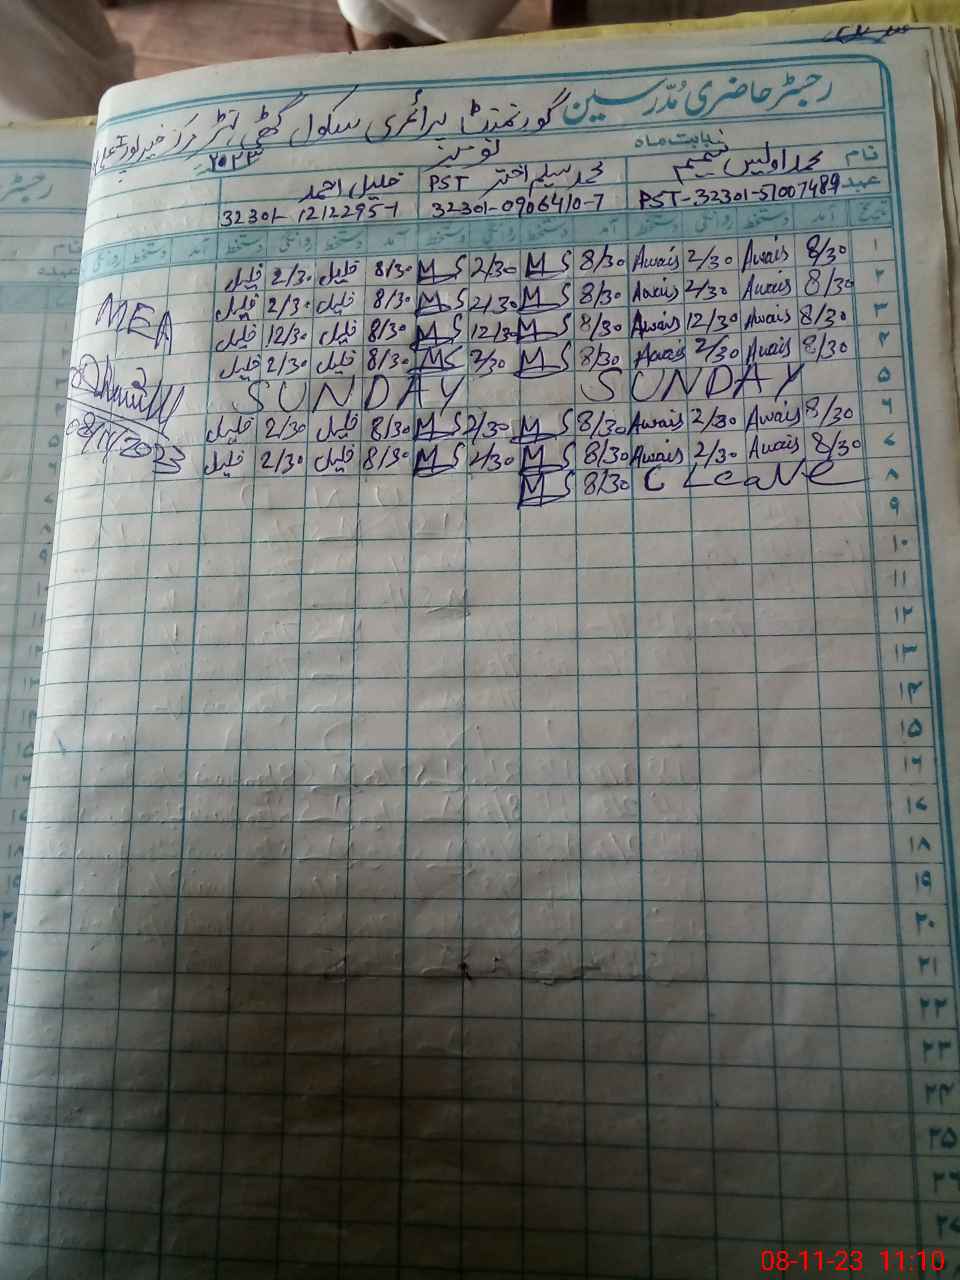 رجسٹر حاضری مُدرّسین گورنمنٹ پرائمری سکول
نام محمد اویس بابت ماہ نومبر ۲۰۲۳
محمد سلیم اختر PST خلیل احمد
عہدہ PST-32301-51007489 32301-0906410-7 32301-1212295-1
تاریخ آمد دستخط روانگی دستخط آمد دستخط روانگی دستخط آمد دستخط روانگی دستخط آمد دستخط روانگی
۱ 8/30 Awais 2/30 Awais 8/30 MS 2/30 MS 8/30 خلیل 2/30 خلیل
۲ 8/30 Awais 2/30 Awais 8/30 MS 2/30 MS 8/30 خلیل 2/30 خلیل
۳ 8/30 Awais 12/30 Awais 8/30 MS 12/30 MS 8/30 خلیل 12/30 خلیل
۴ 8/30 Awais 2/30 Awais 8/30 MS 2/30 MS 8/30 خلیل 2/30 خلیل
۵ SUNDAY SUNDAY
۶ 8/30 Awais 2/30 Awais 8/30 MS 2/30 MS 8/30 خلیل 2/30 خلیل
۷ 8/30 Awais 2/30 Awais 8/30 MS 2/30 MS 8/30 خلیل 2/30 خلیل
۸ CLeaVe 8/30 MS
MEA
08/11/2023
۹
۱۰
۱۱
۱۲
۱۳
۱۴
۱۵
۱۶
۱۷
۱۸
۱۹
۲۰
۲۱
۲۲
۲۳
۲۴
۲۵
۲۶
۲۷
08-11-23 11:10